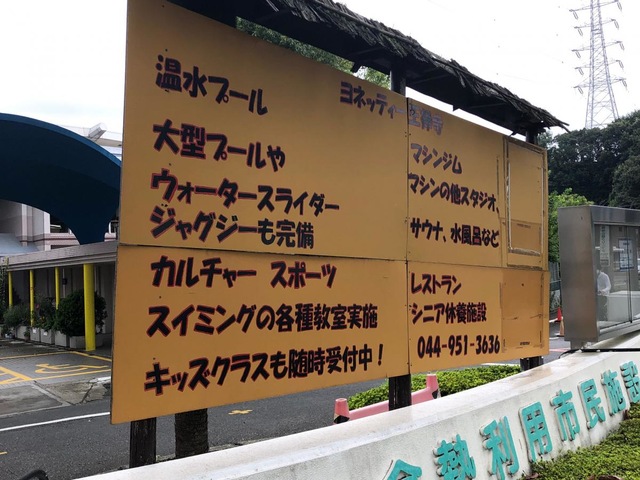 ヨネッティー王禅寺
温水プール
大型プールや
ウォータースライダー
ジャグジーも完備
カルチャー スポーツ
スイミングの各種教室実施
キッズクラスも随時受付中!
マシンジム
マシンの他スタジオ、
サウナ、水風呂など
レストラン
シニア休養施設
044-951-3636
余熱利用市民施設